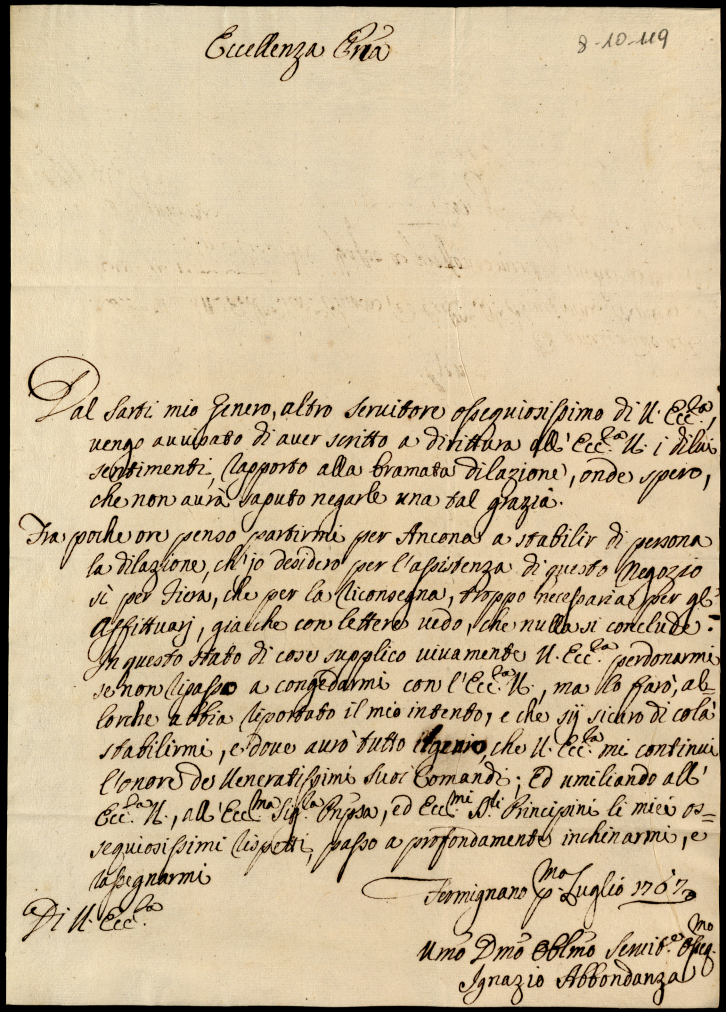 Eccellenza Pñia
8-10-119
Dal Sarti mio Genero, altro servitore ossequiosissimo di V. Ecc.za,
vengo avvisato di aver scritto a dirittura all' Ecc.za V. i di lui
sentimenti, rapporto alla bramata dilazione, onde spero,
che non aurà saputo negarle una tal grazia.
Tra poche ore penso partirmi per Ancona a stabilir di persona
la dilazione, ch'io desidero per l'assistenza di questo Negozio
sì per Fiera, che per la Riconsegna, troppo necessaria per gl'
Affittuarj, giache con lettere vedo, che nulla si conclude.
In questo stato di cose supplico vivamente V. Ecc.za perdonarmi
se non ripasso a congedarmi con l'Ecc.za V., ma lo farò, al-
lorche abbia riportato il mio intento, e che sij sicuro di colà
stabilirmi, e dove aurò tutto il genio, che V. Ecc.za mi continui
l'onore de Veneratissimi suoi Comandi; Ed umiliando all'
Ecc.za V., all' Ecc.ma Sig.ra Pñpsa, ed Ecc.mi S.ri Principini li miei os=
sequiosissimi rispetti, passo a profondamente inchinarmi, e
rassegnarmi
Fermignano p.mo Luglio 1767
Di V. Ecc.za
Umo Dmo Obblmo Servit.e Osseq.mo
Ignazio Abbondanza